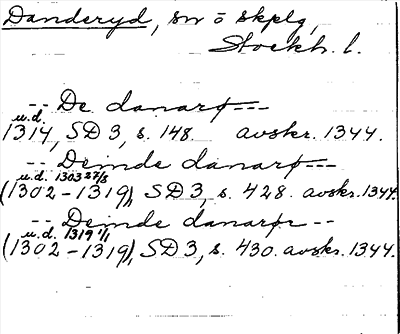 Danderyd, sn o skplg,
Stockh. l.
-- De danarø---
u.d.
1314, SD 3, s. 148. avskr. 1344.
-- Deinde danarø---
u.d. 1303 27/8
(1302-1319), SD 3, s. 428. avskr. 1344.
-- Deinde danarør --
u.d. 1319 1/1
(1302-1319), SD 3, s. 430. avskr. 1344.